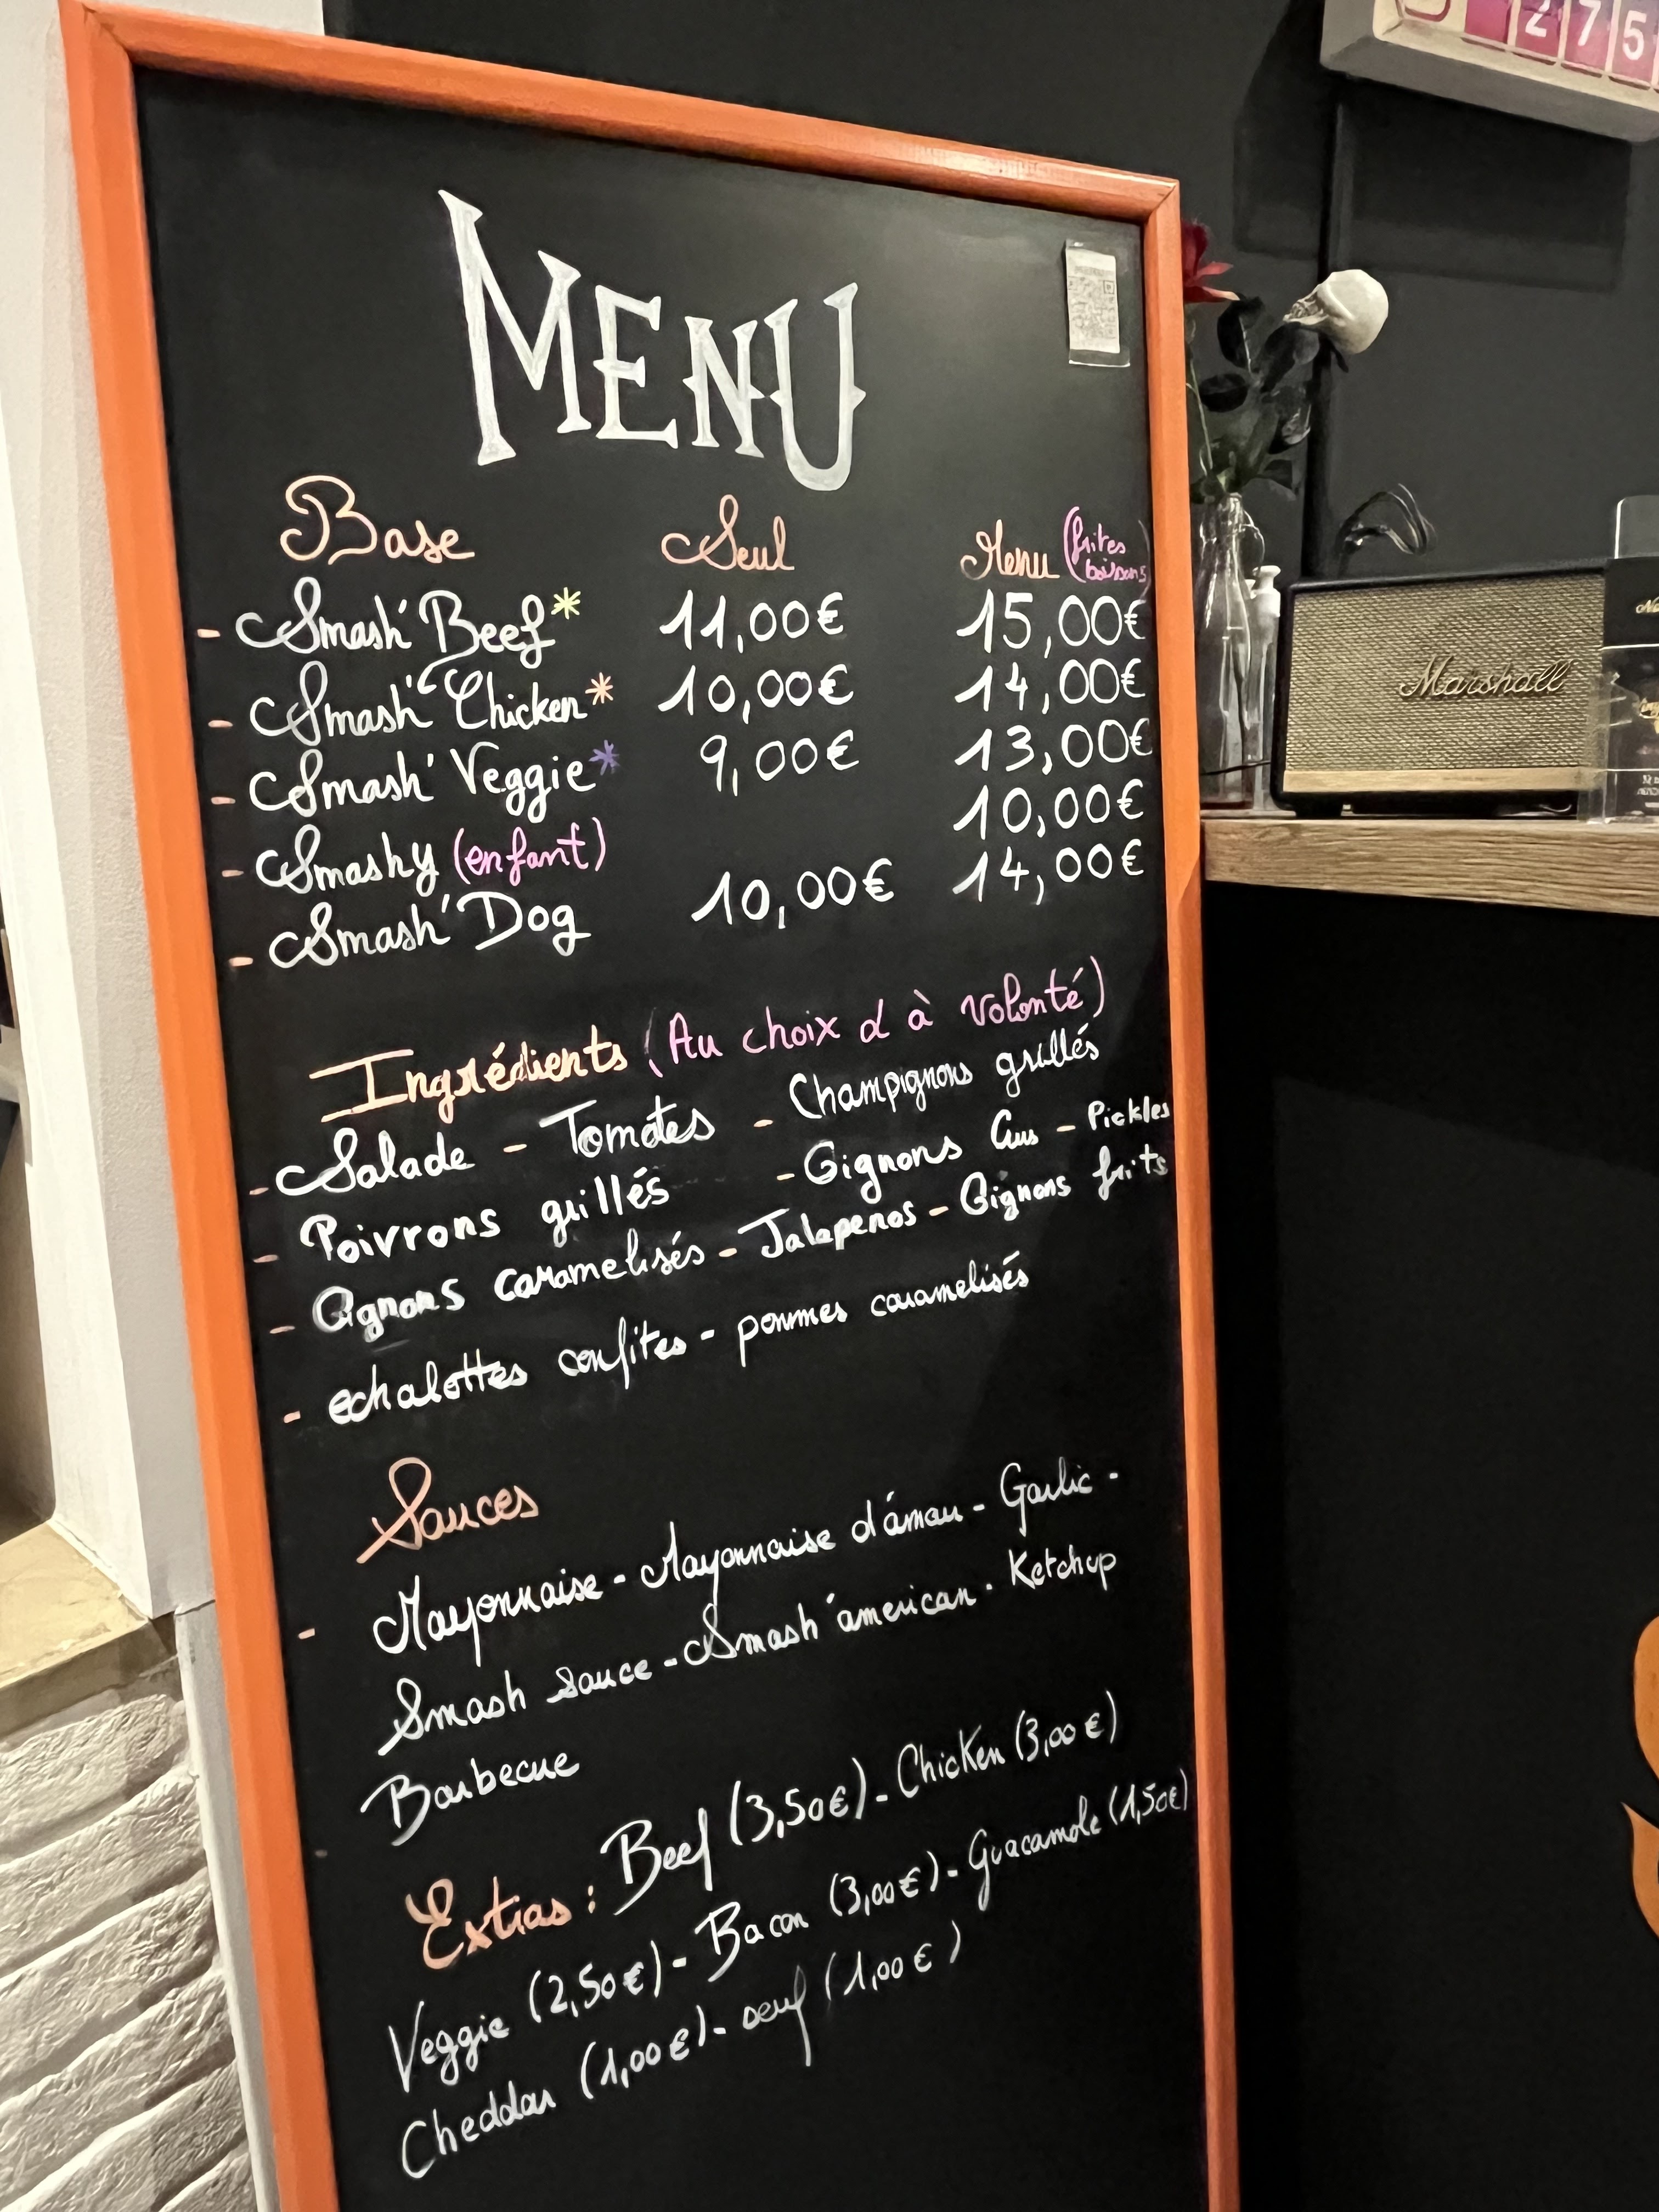 275
MENU
Base Seul Menu (frites boissons)
- Smash' Beef* 11,00€ 15,00€
- Smash' Chicken* 10,00€ 14,00€
- Smash' Veggie* 9,00€ 13,00€
- Smashy (enfant) 10,00€
- Smash' Dog 10,00€ 14,00€
Ingrédients (Au choix & à volonté)
- Salade - Tomates - Champignons grillés
- Poivrons grillés - Oignons Crus - Pickles
- Oignons caramelisés - Jalapenos - Oignons frits
- echalottes confites - pommes caramelisés
Sauces
- Mayonnaise - Mayonnaise d'áman - Garlic -
Smash sauce - Smash'american - Ketchup
Barbecue
Extras : Beef (3,50€) - Chicken (3,00€)
Veggie (2,50€) - Bacon (3,00€) - Guacamole (1,50€)
Cheddar (1,00€) - oeuf (1,00€)
Marshall